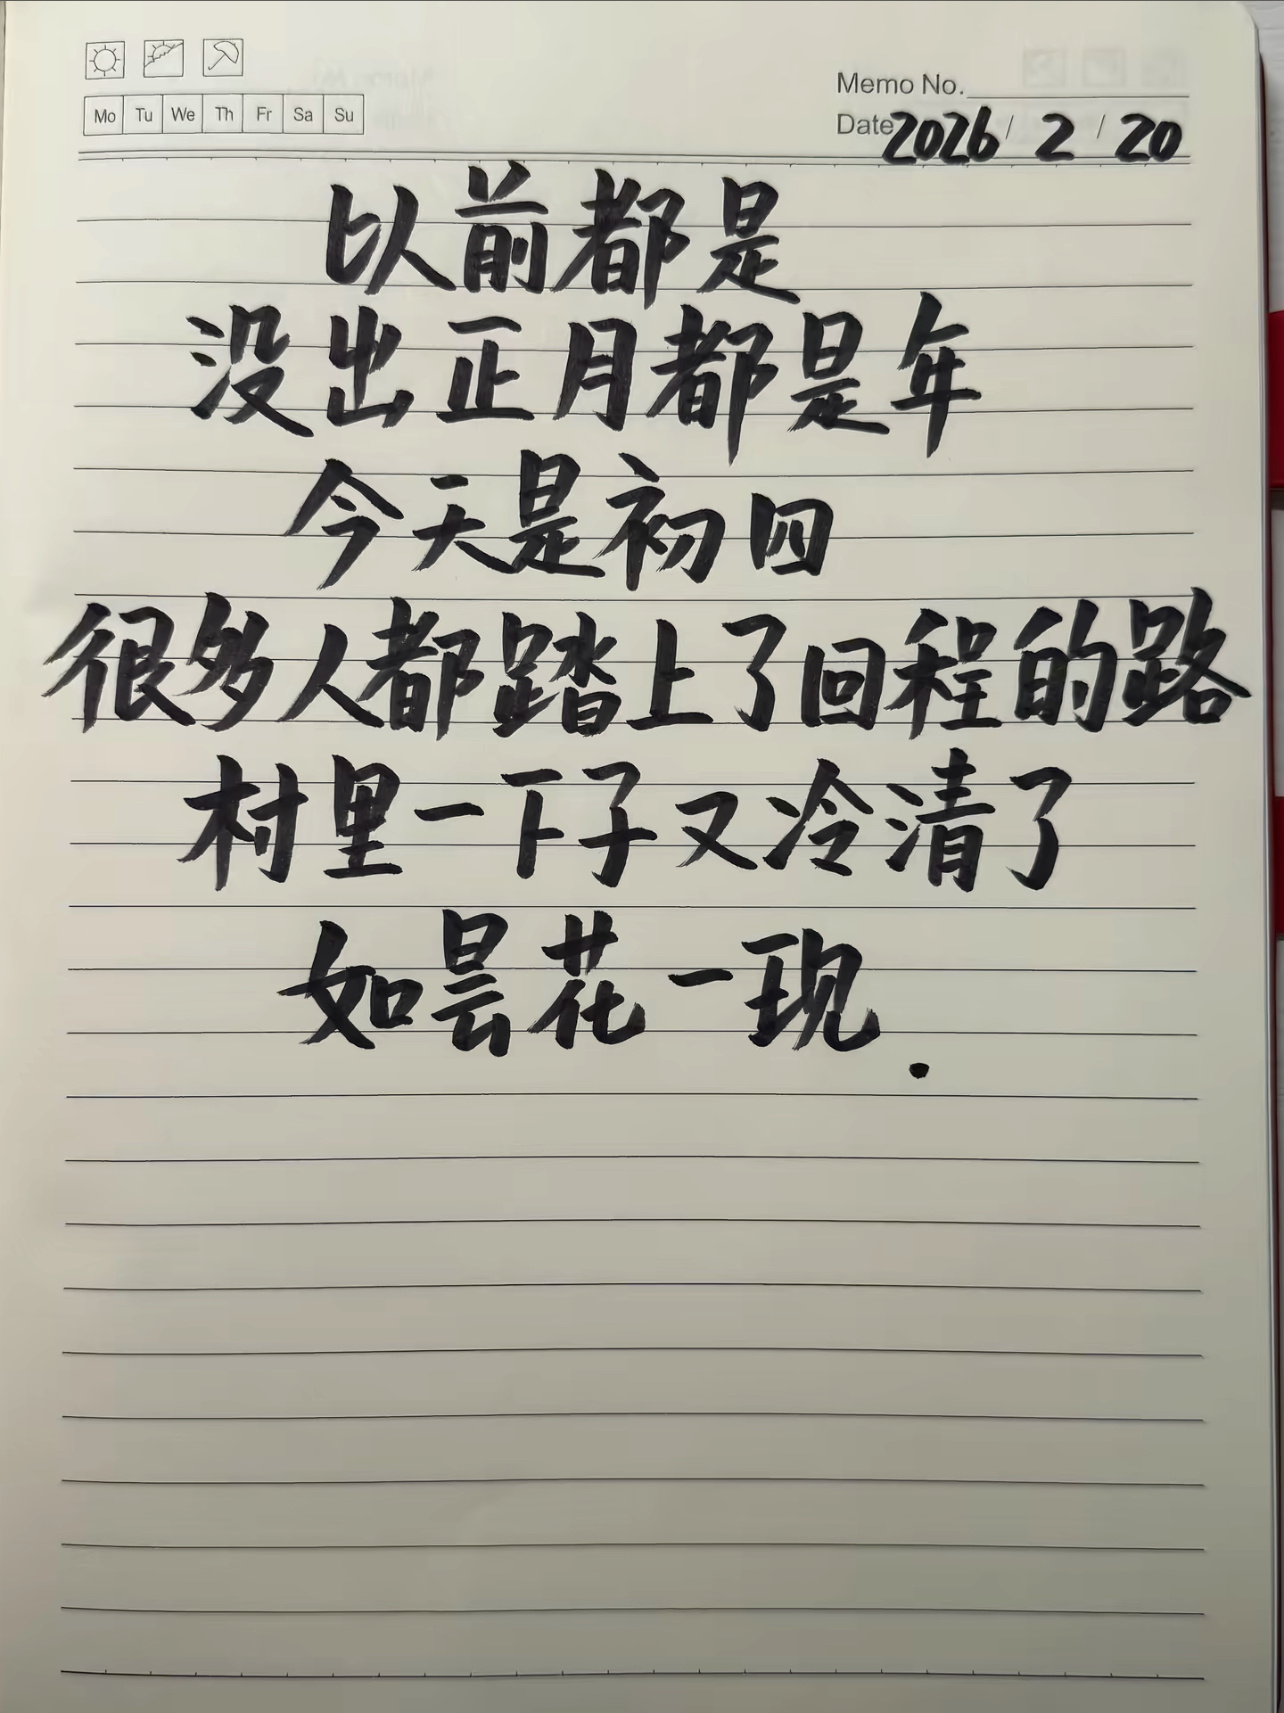 Memo No.
Mo Tu We Th Fr Sa Su
Date 2026 / 2 / 20
以前都是
没出正月都是年
今天是初四
很多人都踏上了回程的路
村里一下子又冷清了
如昙花一现.